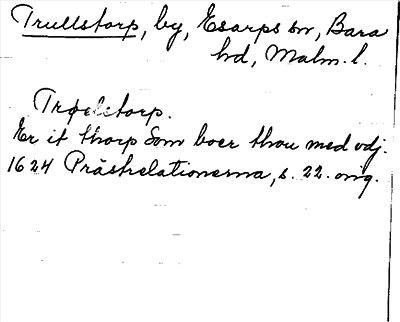 Trullstorp, by, Esarps sn, Bara
hd, Malm. l.
Trøelstorp.
Er it thorp Som boer thou med vdj.
1624 Prästrelationerna, s. 22. orig.